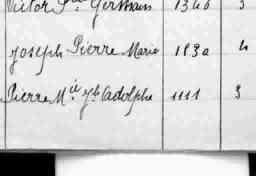 Victor Ste Germain 1346 3
Joseph Pierre Marie 1830 4
Pierre Mie Jh Adolphe 1111 3